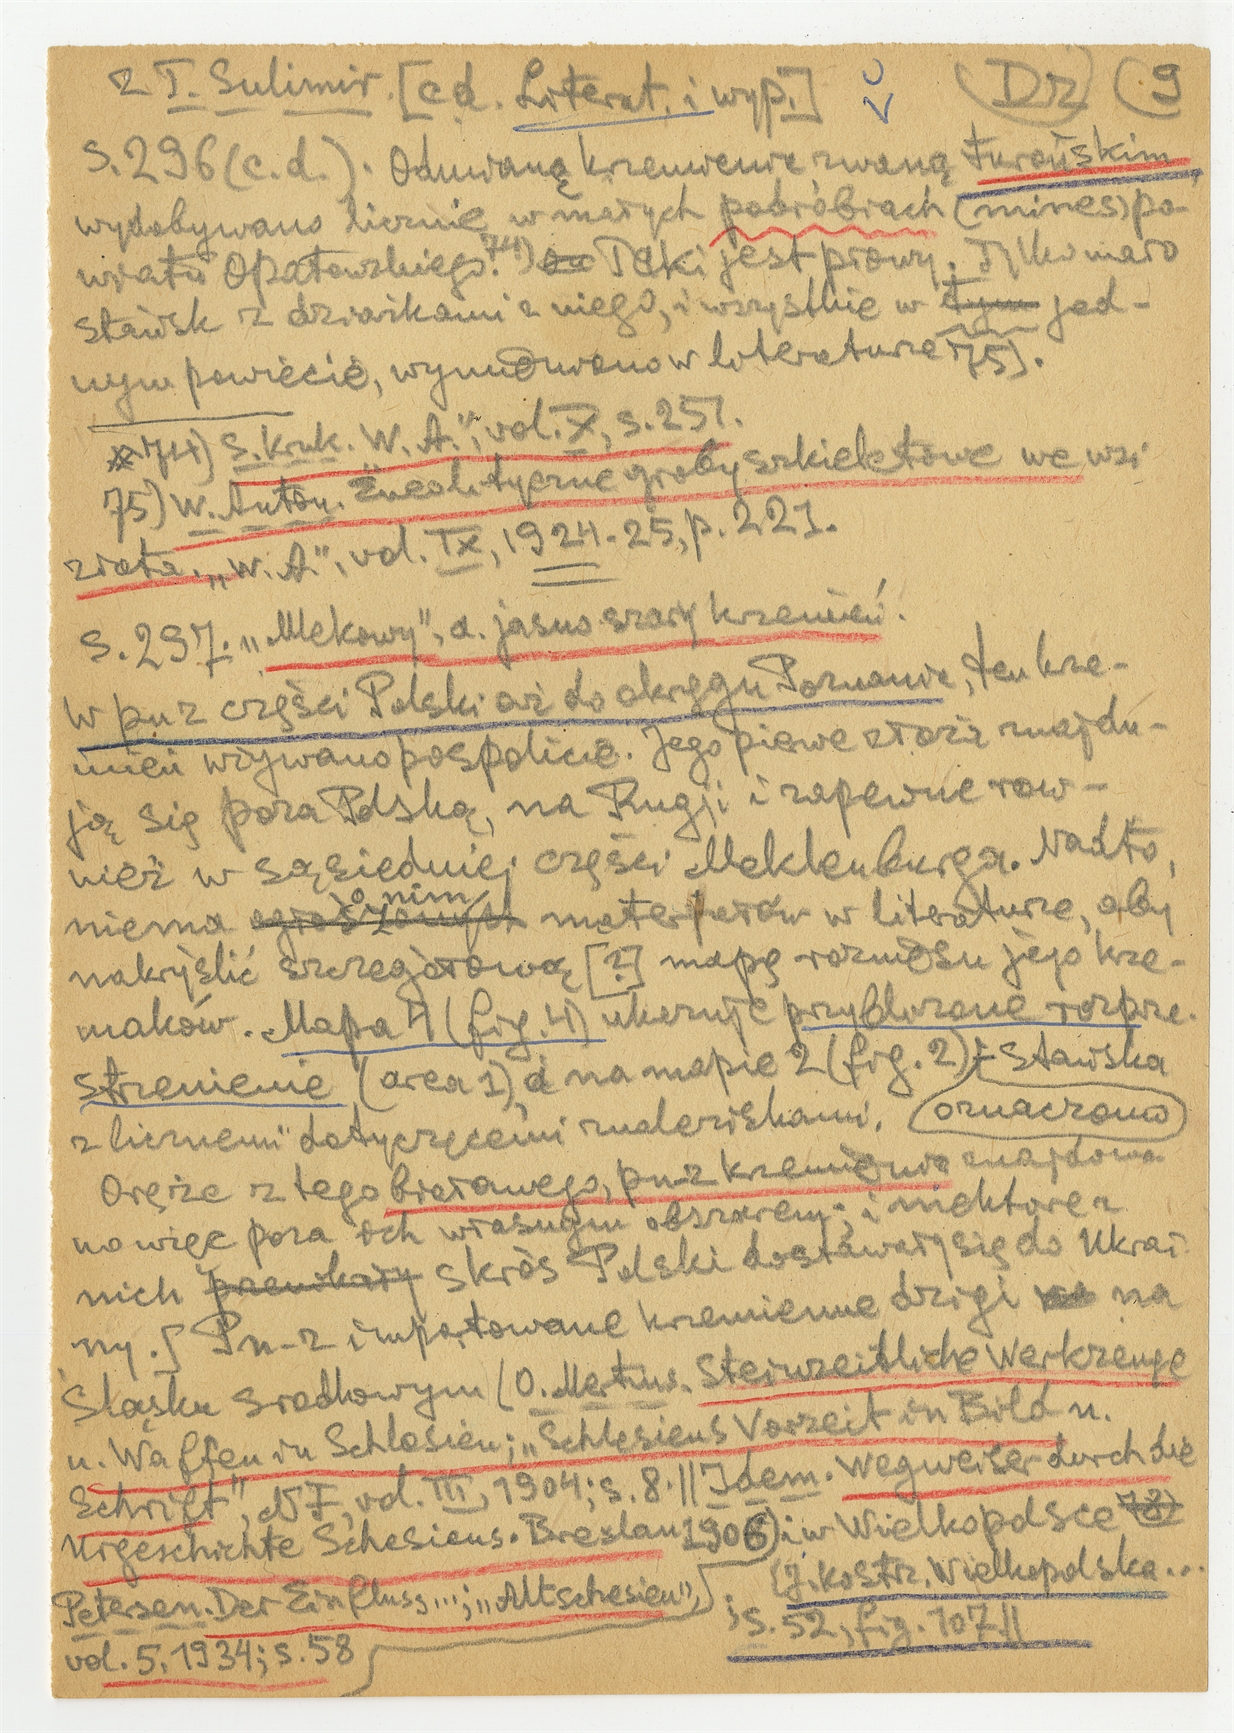 z T. Sulimir. [cd. Literat. i wyp.] Dz 9
S. 296 (c.d.). Odmianą krzemienie zwaną turońskim,
wydobywano licznie w małych podróbiach (mines) po-
wiatu Opatowskiego. 74) Taki jest prawy. Tylko mało
stawisk z działkami z niego, i wszystkie w tym jed-
nym powiecie, wymieniono w literaturze 75).
74) S. Kruk. W. A.", vol. X, s. 257.
75) W. Anton. Eneolityczne groby szkieletowe we wsi
Złota. „W. A.", vol. IX, 1924-25, p. 221.
S. 297. „Mlekowy", a. jasno szary krzemień.
W pn z części Polski aż do okręgu Poznania, ten krze-
mień używano pospolicie. Jego pierwe złoża znajdu-
ją się poza Polską, na Rugji i zapewne row-
nież w sąsiedniej części Meklenburga. Nadto,
niema o nim materjałów w literaturze, aby
nakryślić szczegółową [?] mapę rozniesu jego krze-
maków. Mapa 4 (fig. 4) ukazuje przybliżone rozprze-
strzenienie (area 1), a na mapie 2 (fig. 2) stawiska
z licznemi dotyczącemi znaleziskami. oznaczono
Oręże z tego białawego, pn-z krzemienia znajdowa
no więc poza ich własnym obszarem; i niektóre z
nich przenikały skróś Polski dostawały się do Ukrai
ny. § Pn-z importowane krzemienne dzigi na
Śląsku Srodkowym (O. Mertins. Steinzeitliche Werkzeuge
u. Waffen in Schlesien; „Schlesiens Vorzeit in Bild u.
Schrift", NF, vol. III, 1904; s. 8. || Idem. Wegweiser durch die
Urgeschichte Schesiens. Breslau 1906) i w Wielkopolsce 78)
Petersen. Der Einfluss...; „Altschesien", (J. Kostrz. Wielkopolska...
vol. 5, 1934; s. 58 ; s. 52, fig. 107 ||